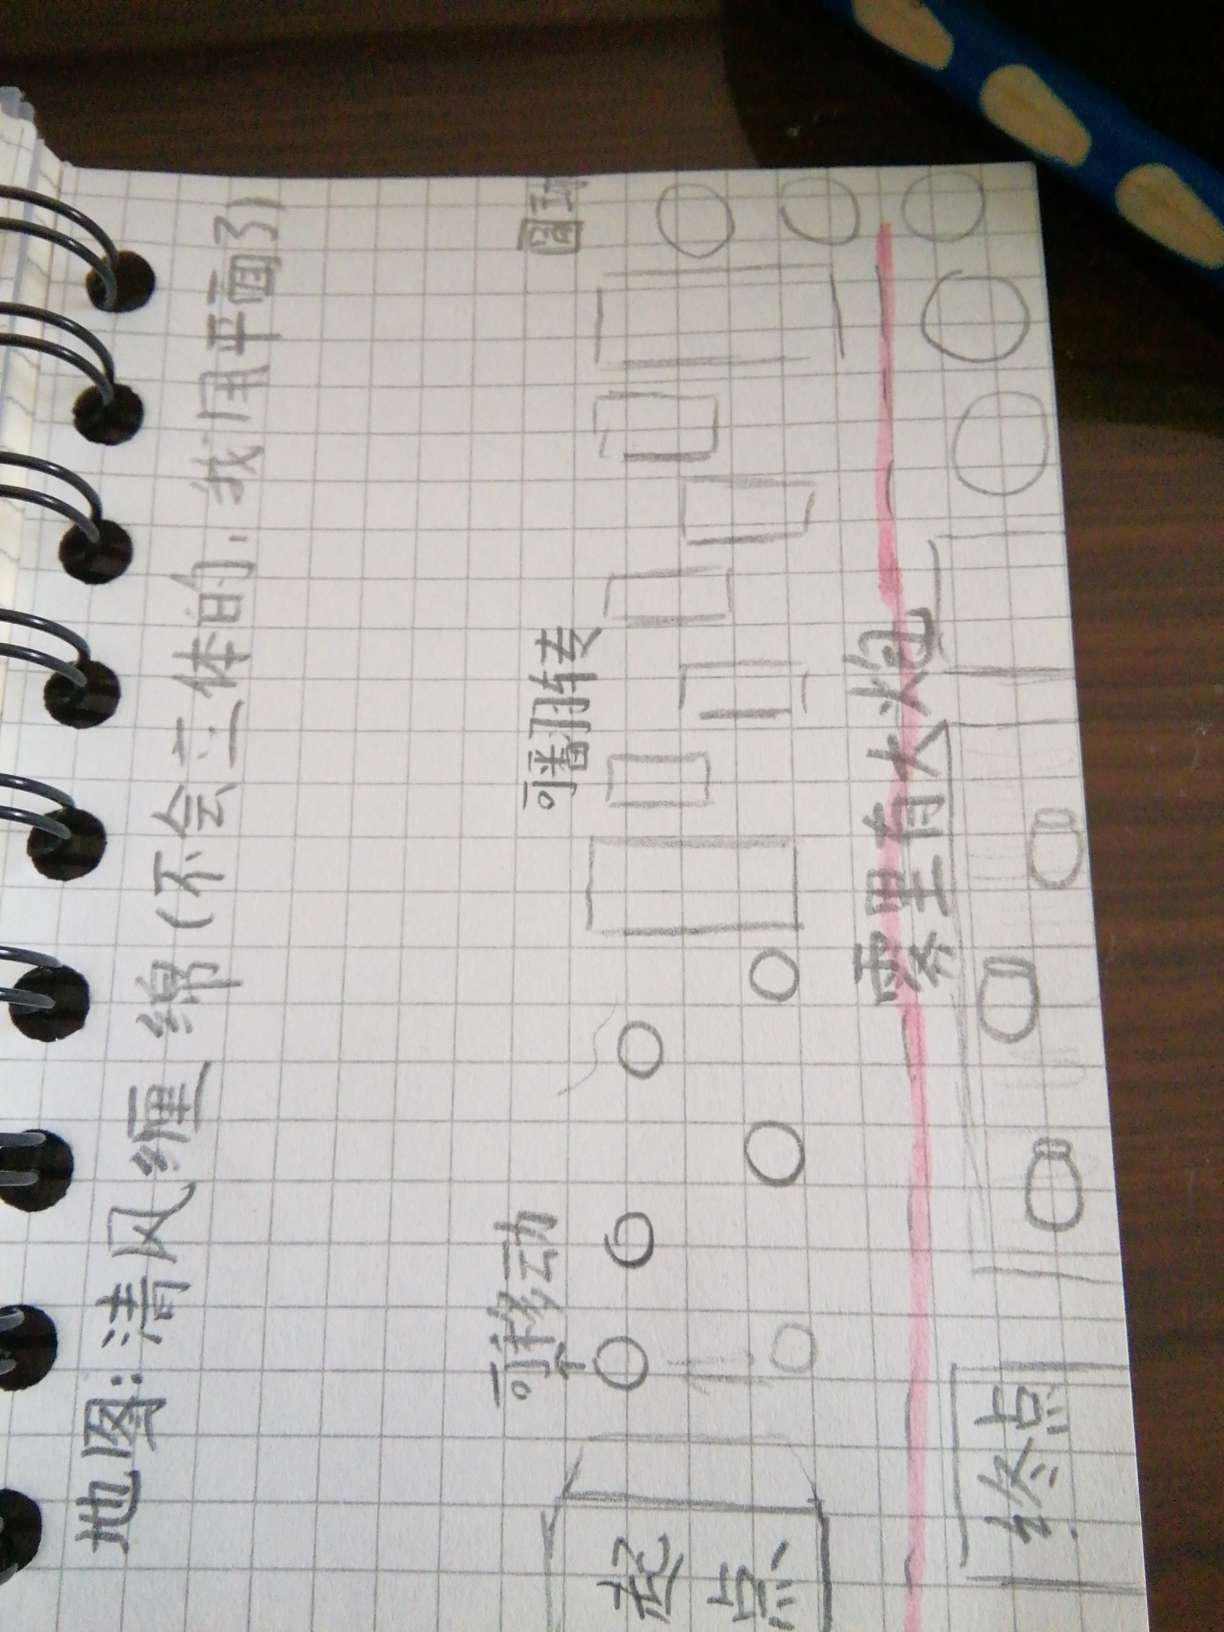 地图:清风缠绵(不会立体的,我用平面了)
可移动
可翻转
圆球
起点
雾里有大炮
终点